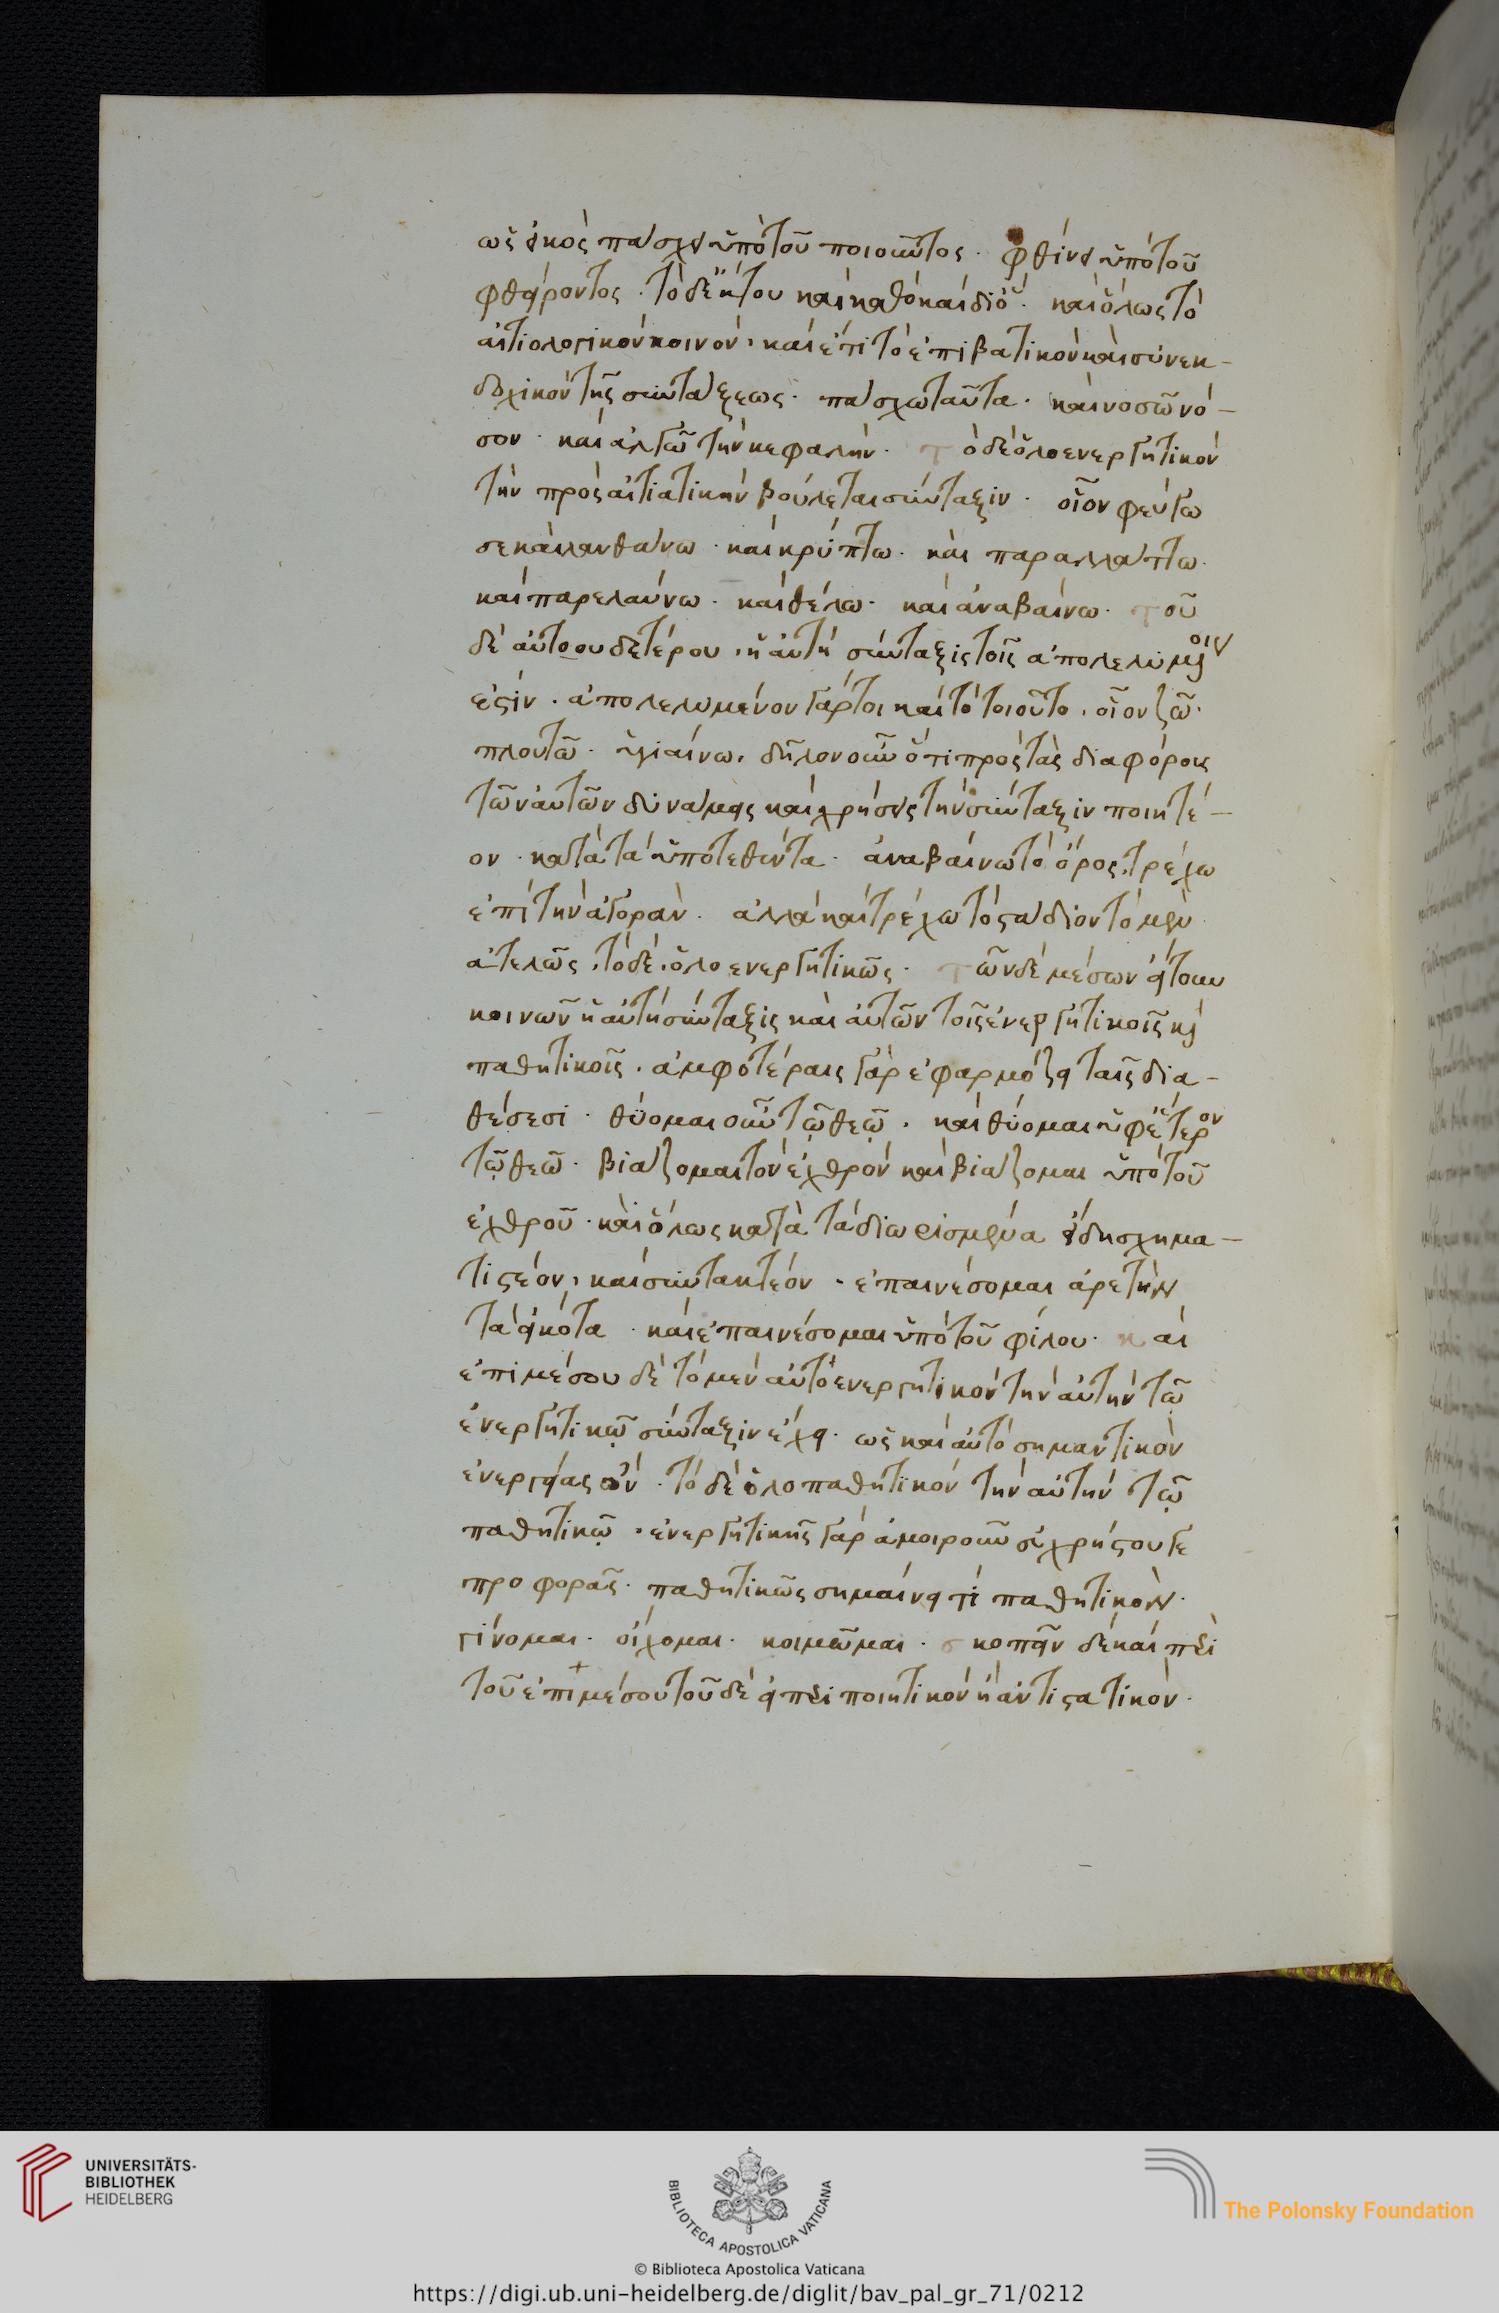 ὡς εἰκὸς πάσχει ὑπὸ τοῦ ποιοῦντος. φθίνει ὑπὸ τοῦ
φθείροντος. τὸ δὲ ἔκ του καὶ καθὸ καὶ διὸ. καὶ ὅλως τὸ
αἰτιολογικὸν κοινόν, καὶ ἔτι τὸ ἐπιβατικὸν καὶ συνεκ-
δοχικὸν τῆς συντάξεως. πάσχω ταῦτα. καὶ νοσῶ νό-
σον. καὶ ἀλγῶ τὴν κεφαλήν. τὸ δὲ ὁλοενεργητικὸν
τὴν πρὸς αἰτιατικὴν βούλεται σύνταξιν. οἷον φεύγω
σε καὶ λανθάνω. καὶ κρύπτω. καὶ παραλλάττω.
καὶ παρελαύνω. καὶ θέλω. καὶ ἀναβαίνω. τοῦ
δὲ αὐτοουδετέρου, ἡ αὐτὴ σύνταξις τοῖς ἀπολελυμένοις
ἐστίν. ἀπολελυμένον γάρ τοι καὶ τὸ τοιοῦτο. οἷον ζῶ.
πλουτῶ. ὑγιαίνω. δῆλον οὖν ὅτι πρὸς τὰς διαφόρους
τῶν αὐτῶν δυνάμεις καὶ χρήσεις τὴν σύνταξιν ποιητέ-
ον. κατὰ τὰ ὑποτεθέντα. ἀναβαίνω τὸ ὄρος. τρέχω
ἐπὶ τὴν ἀγοράν. ἀλλὰ καὶ τρέχω τὸ στάδιον τὸ μὲν
ἀτελῶς. τὸ δὲ. ὁλοενεργητικῶς. τῶν δὲ μέσων ἤτοι
κοινῶν ἡ αὐτὴ σύνταξις καὶ αὐτῶν τοῖς ἐνεργητικοῖς καὶ
παθητικοῖς. ἀμφοτέραις γὰρ ἐφαρμόζει ταῖς δια-
θέσεσι. θύομαι σὺν τῷ θεῷ. καὶ θύομαι ὑφ' ἕτερον
τῷ θεῷ. βιάζομαι τὸν ἐχθρὸν καὶ βιάζομαι ὑπὸ τοῦ
ἐχθροῦ. καὶ ὅλως κατὰ τὰ διωρισμένα εἴδη σχημα-
τιστέον, καὶ συντακτέον. ἐπαινέσομαι ἀρετὴν
τὰ εἰκότα. καὶ ἐπαινέσομαι ὑπὸ τοῦ φίλου. καὶ
ἐπιμέσου δὲ τὸ μὲν αὐτοενεργητικὸν τὴν αὐτὴν τῷ
ἐνεργητικῷ σύνταξιν ἔχει. ὡς καὶ αὐτὸ σημαντικὸν
ἐνεργείας ὄν. τὸ δὲ ὁλοπαθητικὸν τὴν αὐτὴν τῷ
παθητικῷ. ἐνεργητικῆς γὰρ ἀμοιροῦν εὐχρήστου γε
προφορᾶς. παθητικῶς σημαίνει τί παθητικόν.
γίνομαι. οἴχομαι. κοιμῶμαι. σκοπεῖν δὲ καὶ περὶ
τοῦ ἐπιμέσου τοῦδε εἰ περιποιητικὸν ἢ ἀντιστατικόν.
UNIVERSITÄTS-
BIBLIOTHEK
HEIDELBERG
BIBLIOTECA APOSTOLICA VATICANA
The Polonsky Foundation
© Biblioteca Apostolica Vaticana
https://digi.ub.uni-heidelberg.de/diglit/bav_pal_gr_71/0212